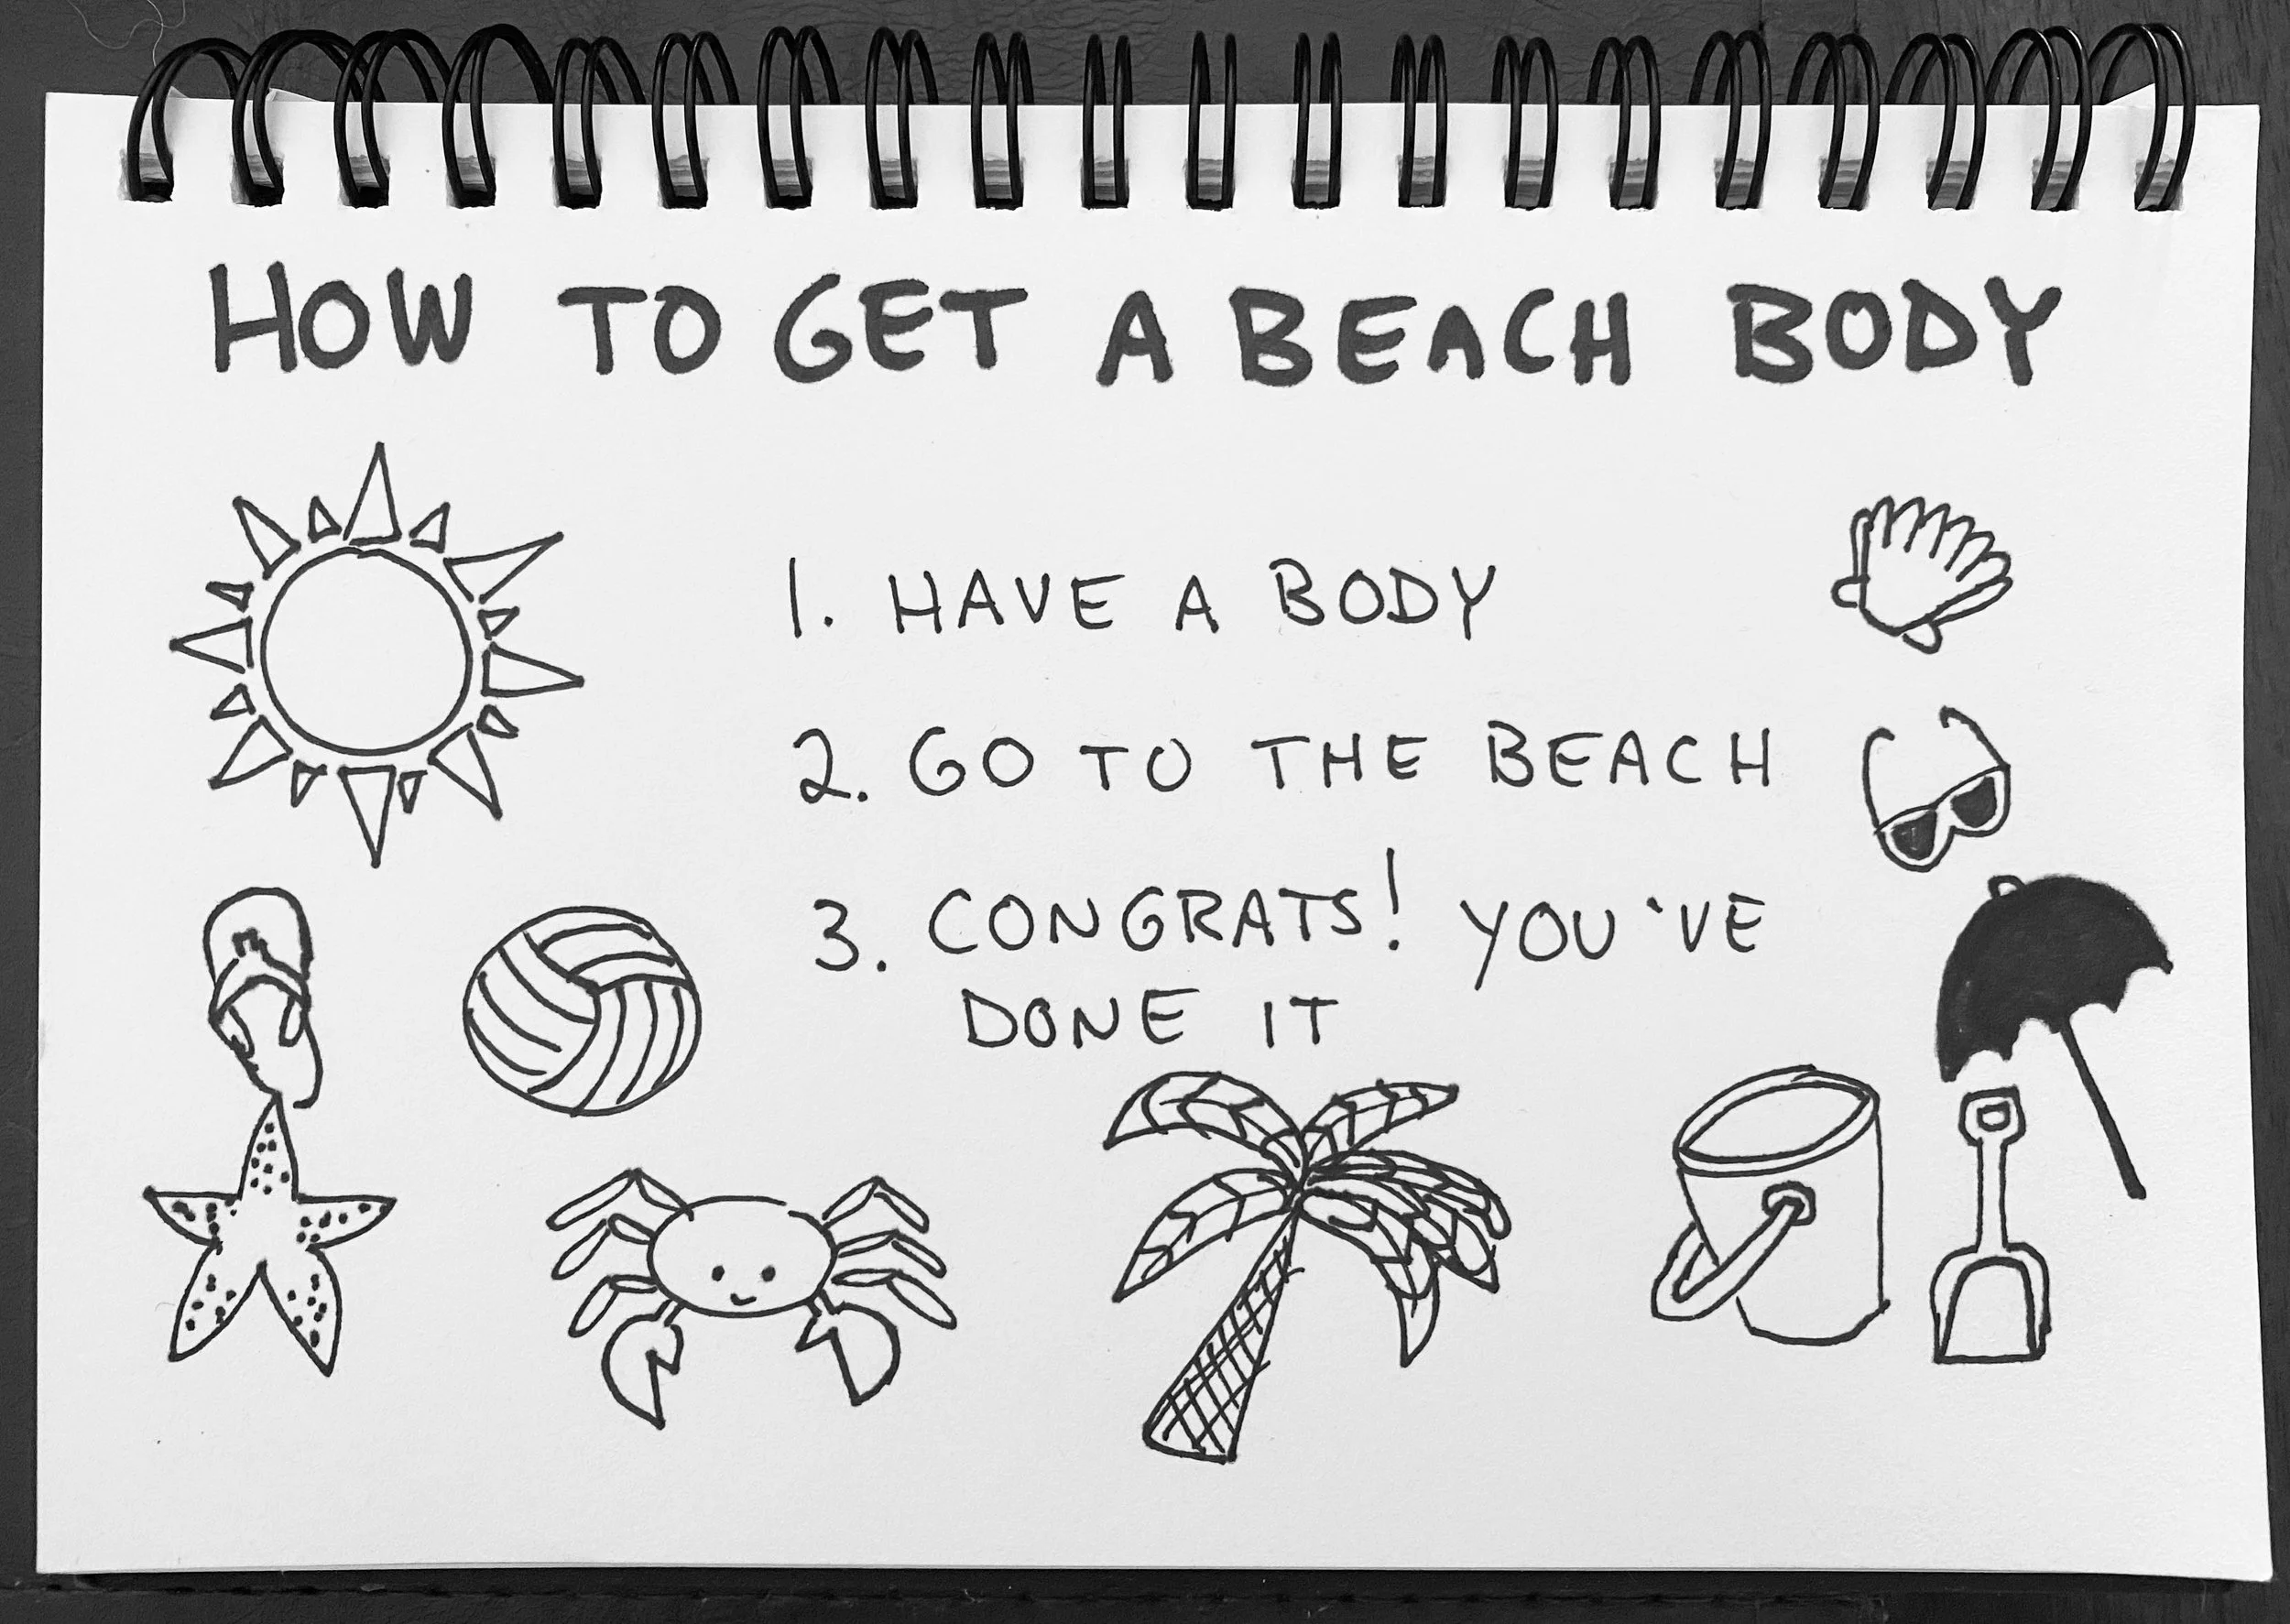 HOW TO GET A BEACH BODY
1. HAVE A BODY
2. GO TO THE BEACH
3. CONGRATS! YOU'VE
DONE IT